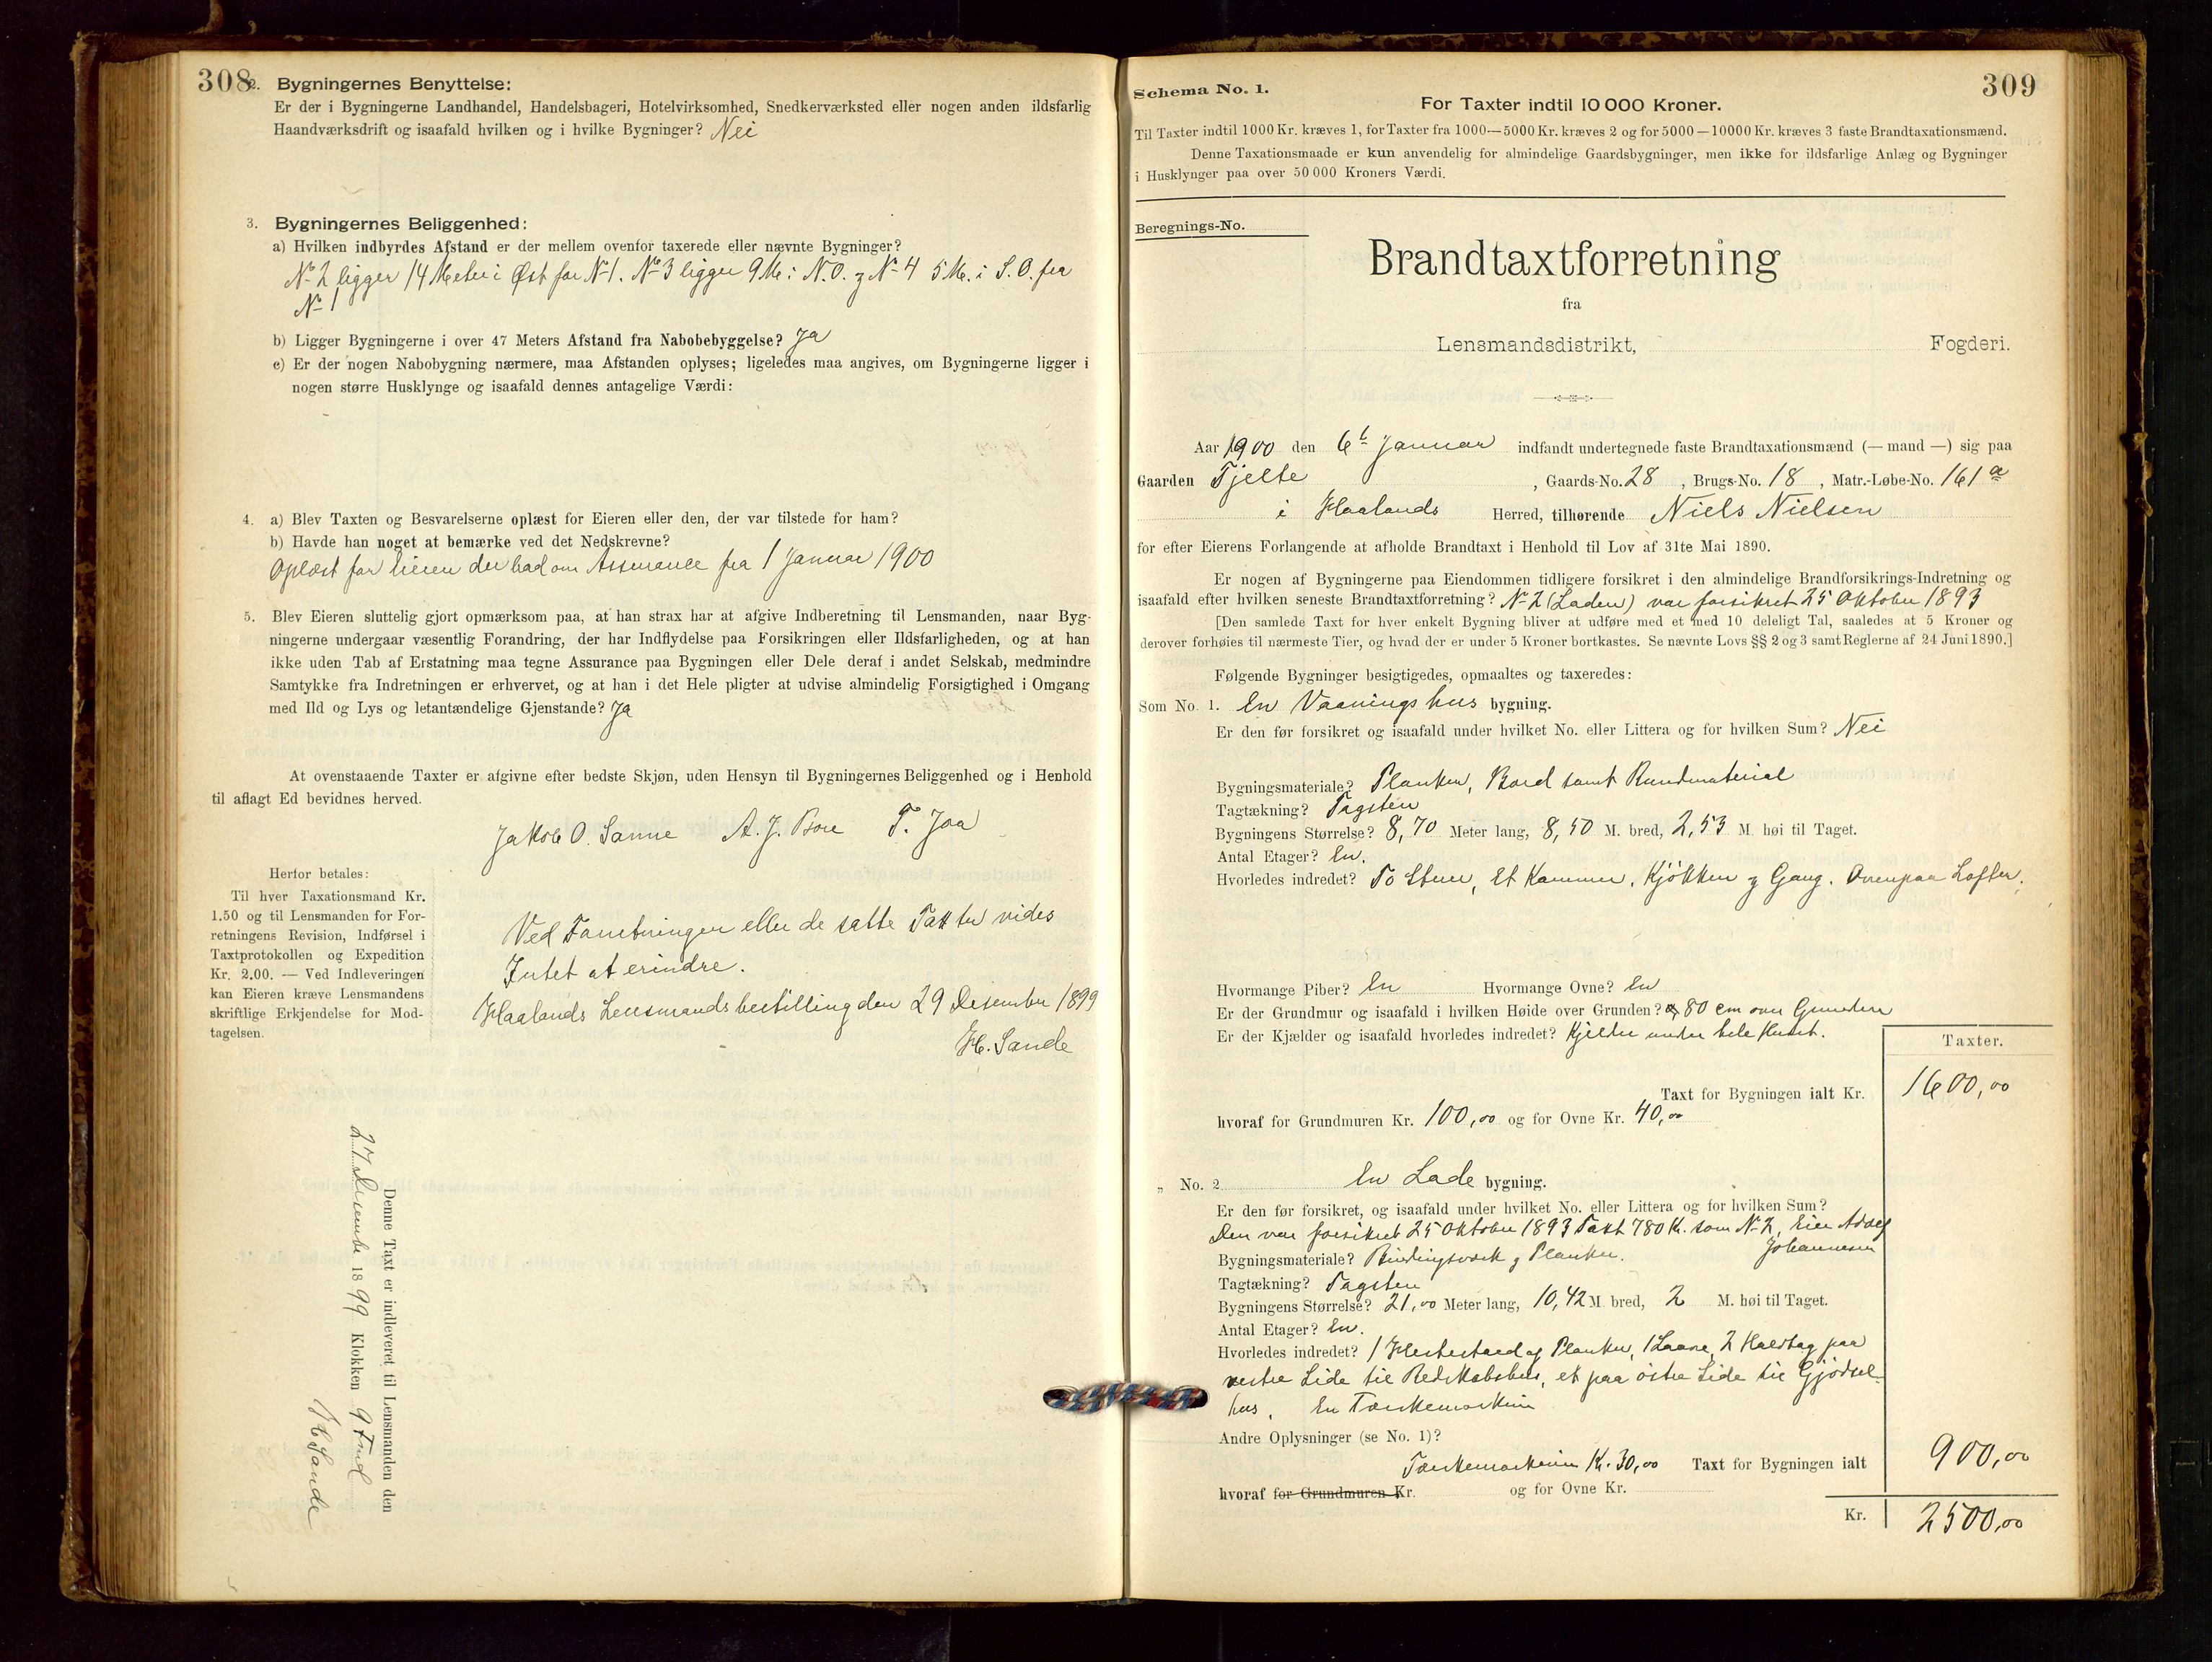 308
2. Bygningernes Benyttelse:
Er der i Bygningerne Landhandel, Handelsbageri, Hotelvirksomhed, Snedkerværksted eller nogen anden ildsfarlig
Haandværksdrift og isaafald hvilken og i hvilke Bygninger? Nei
3. Bygningernes Beliggenhed:
a) Hvilken indbyrdes Afstand er der mellem ovenfor taxerede eller nævnte Bygninger?
No 2 ligger 14 Meter i Øst for No 1. No 3 ligger 9 M. i N.O. og No 4 5 M. i S.O. fra
No 1
b) Ligger Bygningerne i over 47 Meters Afstand fra Nabobebyggelse? Ja
c) Er der nogen Nabobygning nærmere, maa Afstanden oplyses; ligeledes maa angives, om Bygningerne ligger i
nogen større Husklynge og isaafald dennes antagelige Værdi:
4. a) Blev Taxten og Besvarelserne oplæst for Eieren eller den, der var tilstede for ham?
b) Havde han noget at bemærke ved det Nedskrevne?
Oplæst for Eieren der bad om Assurance fra 1 Januar 1900
5. Blev Eieren sluttelig gjort opmærksom paa, at han strax har at afgive Indberetning til Lensmanden, naar Byg-
ningerne undergaar væsentlig Forandring, der har Indflydelse paa Forsikringen eller Ildsfarligheden, og at han
ikke uden Tab af Erstatning maa tegne Assurance paa Bygningen eller Dele deraf i andet Selskab, medmindre
Samtykke fra Indretningen er erhvervet, og at han i det Hele pligter at udvise almindelig Forsigtighed i Omgang
med Ild og Lys og letantændelige Gjenstande? Ja
At ovenstaaende Taxter er afgivne efter bedste Skjøn, uden Hensyn til Bygningernes Beliggenhed og i Henhold
til aflagt Ed bevidnes herved.
Jakob O. Sanne A. J. Bore T. Joa
Herfor betales:
Til hver Taxationsmand Kr.
1.50 og til Lensmanden for For-
retningens Revision, Indførsel i
Taxtprotokollen og Expedition
Kr. 2.00. — Ved Indleveringen
kan Eieren kræve Lensmandens
skriftlige Erkjendelse for Mod-
tagelsen.
Ved Forretningen eller de satte Taxter vides
Intet at erindre.
Haalands Lensmandsbestilling den 29 Desember 1899
H. Sande
Denne Taxt er indleveret til Lensmanden den
27 Desember 1899 Klokken 9 Fmd
H Sande
309
Schema No. 1.
For Taxter indtil 10 000 Kroner.
Til Taxter indtil 1000 Kr. kræves 1, for Taxter fra 1000—5000 Kr. kræves 2 og for 5000—10000 Kr. kræves 3 faste Brandtaxationsmænd.
Denne Taxationsmaade er kun anvendelig for almindelige Gaardsbygninger, men ikke for ildsfarlige Anlæg og Bygninger
i Husklynger paa over 50 000 Kroners Værdi.
Beregnings-No.
Brandtaxtforretning
fra
Lensmandsdistrikt, Fogderi.
Aar 1900 den 6t Januar indfandt undertegnede faste Brandtaxationsmænd (— mand —) sig paa
Gaarden Tjelte , Gaards-No. 28 , Brugs-No. 18 , Matr.-Løbe-No. 161 a
i Haalands Herred, tilhørende Niels Nielsen
for efter Eierens Forlangende at afholde Brandtaxt i Henhold til Lov af 31te Mai 1890.
Er nogen af Bygningerne paa Eiendommen tidligere forsikret i den almindelige Brandforsikrings-Indretning og
isaafald efter hvilken seneste Brandtaxtforretning? No 2 (Laden) var forsikret 25 Oktober 1893
[Den samlede Taxt for hver enkelt Bygning bliver at udføre med et med 10 deleligt Tal, saaledes at 5 Kroner og
derover forhøies til nærmeste Tier, og hvad der er under 5 Kroner bortkastes. Se nævnte Lovs §§ 2 og 3 samt Reglerne af 24 Juni 1890.]
Følgende Bygninger besigtigedes, opmaaltes og taxeredes:
Som No. 1. En Vaaningshus bygning.
Er den før forsikret og isaafald under hvilket No. eller Littera og for hvilken Sum? Nei
Bygningsmateriale? Planker, Bord samt Rundmaterial
Tagtækning? Tagsten
Bygningens Størrelse? 8,70 Meter lang, 8,50 M. bred, 2,53 M. høi til Taget.
Antal Etager? En.
Hvorledes indredet? To Stuer, Et Kammer, Kjökken og Gang. Ovenpaa Lofter.
Hvormange Piber? En Hvormange Ovne? En
Er der Grundmur og isaafald i hvilken Høide over Grunden? 80 cm over Grunden
Er der Kjælder og isaafald hvorledes indredet? Kjelder under hele Huset.
Taxter.
Taxt for Bygningen ialt Kr. 1600,00
hvoraf for Grundmuren Kr. 100,00 og for Ovne Kr. 40,00
„ No. 2 En Lade bygning.
Er den før forsikret, og isaafald under hvilket No. eller Littera og for hvilken Sum?
Den var forsikret 25 Oktober 1893 Taxt 780 K. som No 2, Eier Adolf
Johannesen
Bygningsmateriale? Bindingsverk og Planker.
Tagtækning? Tagsten
Bygningens Størrelse? 21,00 Meter lang, 10,42 M. bred, 2 M. høi til Taget.
Antal Etager? En.
Hvorledes indredet? 1 Hestestald af Planker, 1 Laave, 2 Halvtag paa
vestre Side til Redskabshus, et paa östre Side til Gjødsel-
hus, En Tærskemaskine
Andre Oplysninger (se No. 1)?
Tærskemaskinen K. 30,00 Taxt for Bygningen ialt 900,00
hvoraf for Grundmuren Kr. og for Ovne Kr.
Kr. 2500,00